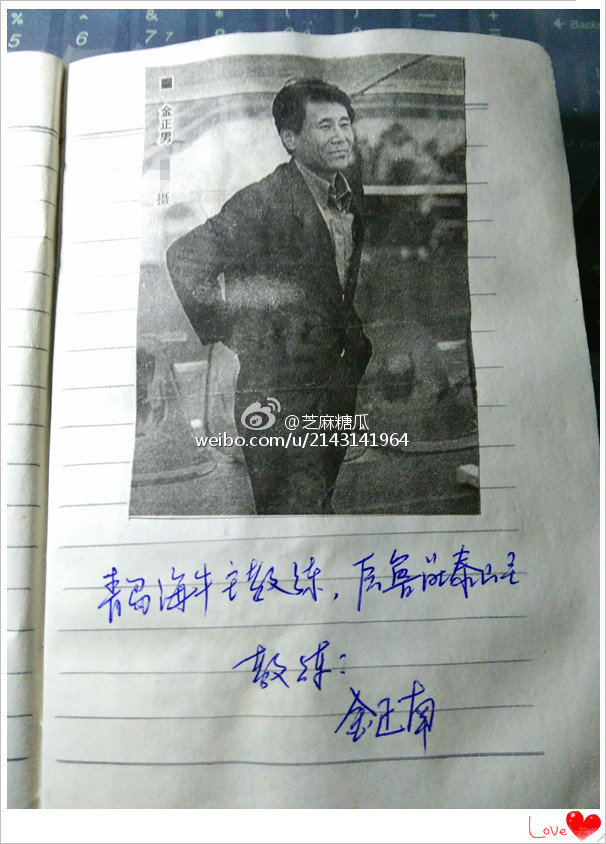 ■ 金正男 摄
@芝麻糖瓜
weibo.com/u/2143141964
青岛海牛主教练，后鲁能泰山主
教练：
金正南
Love